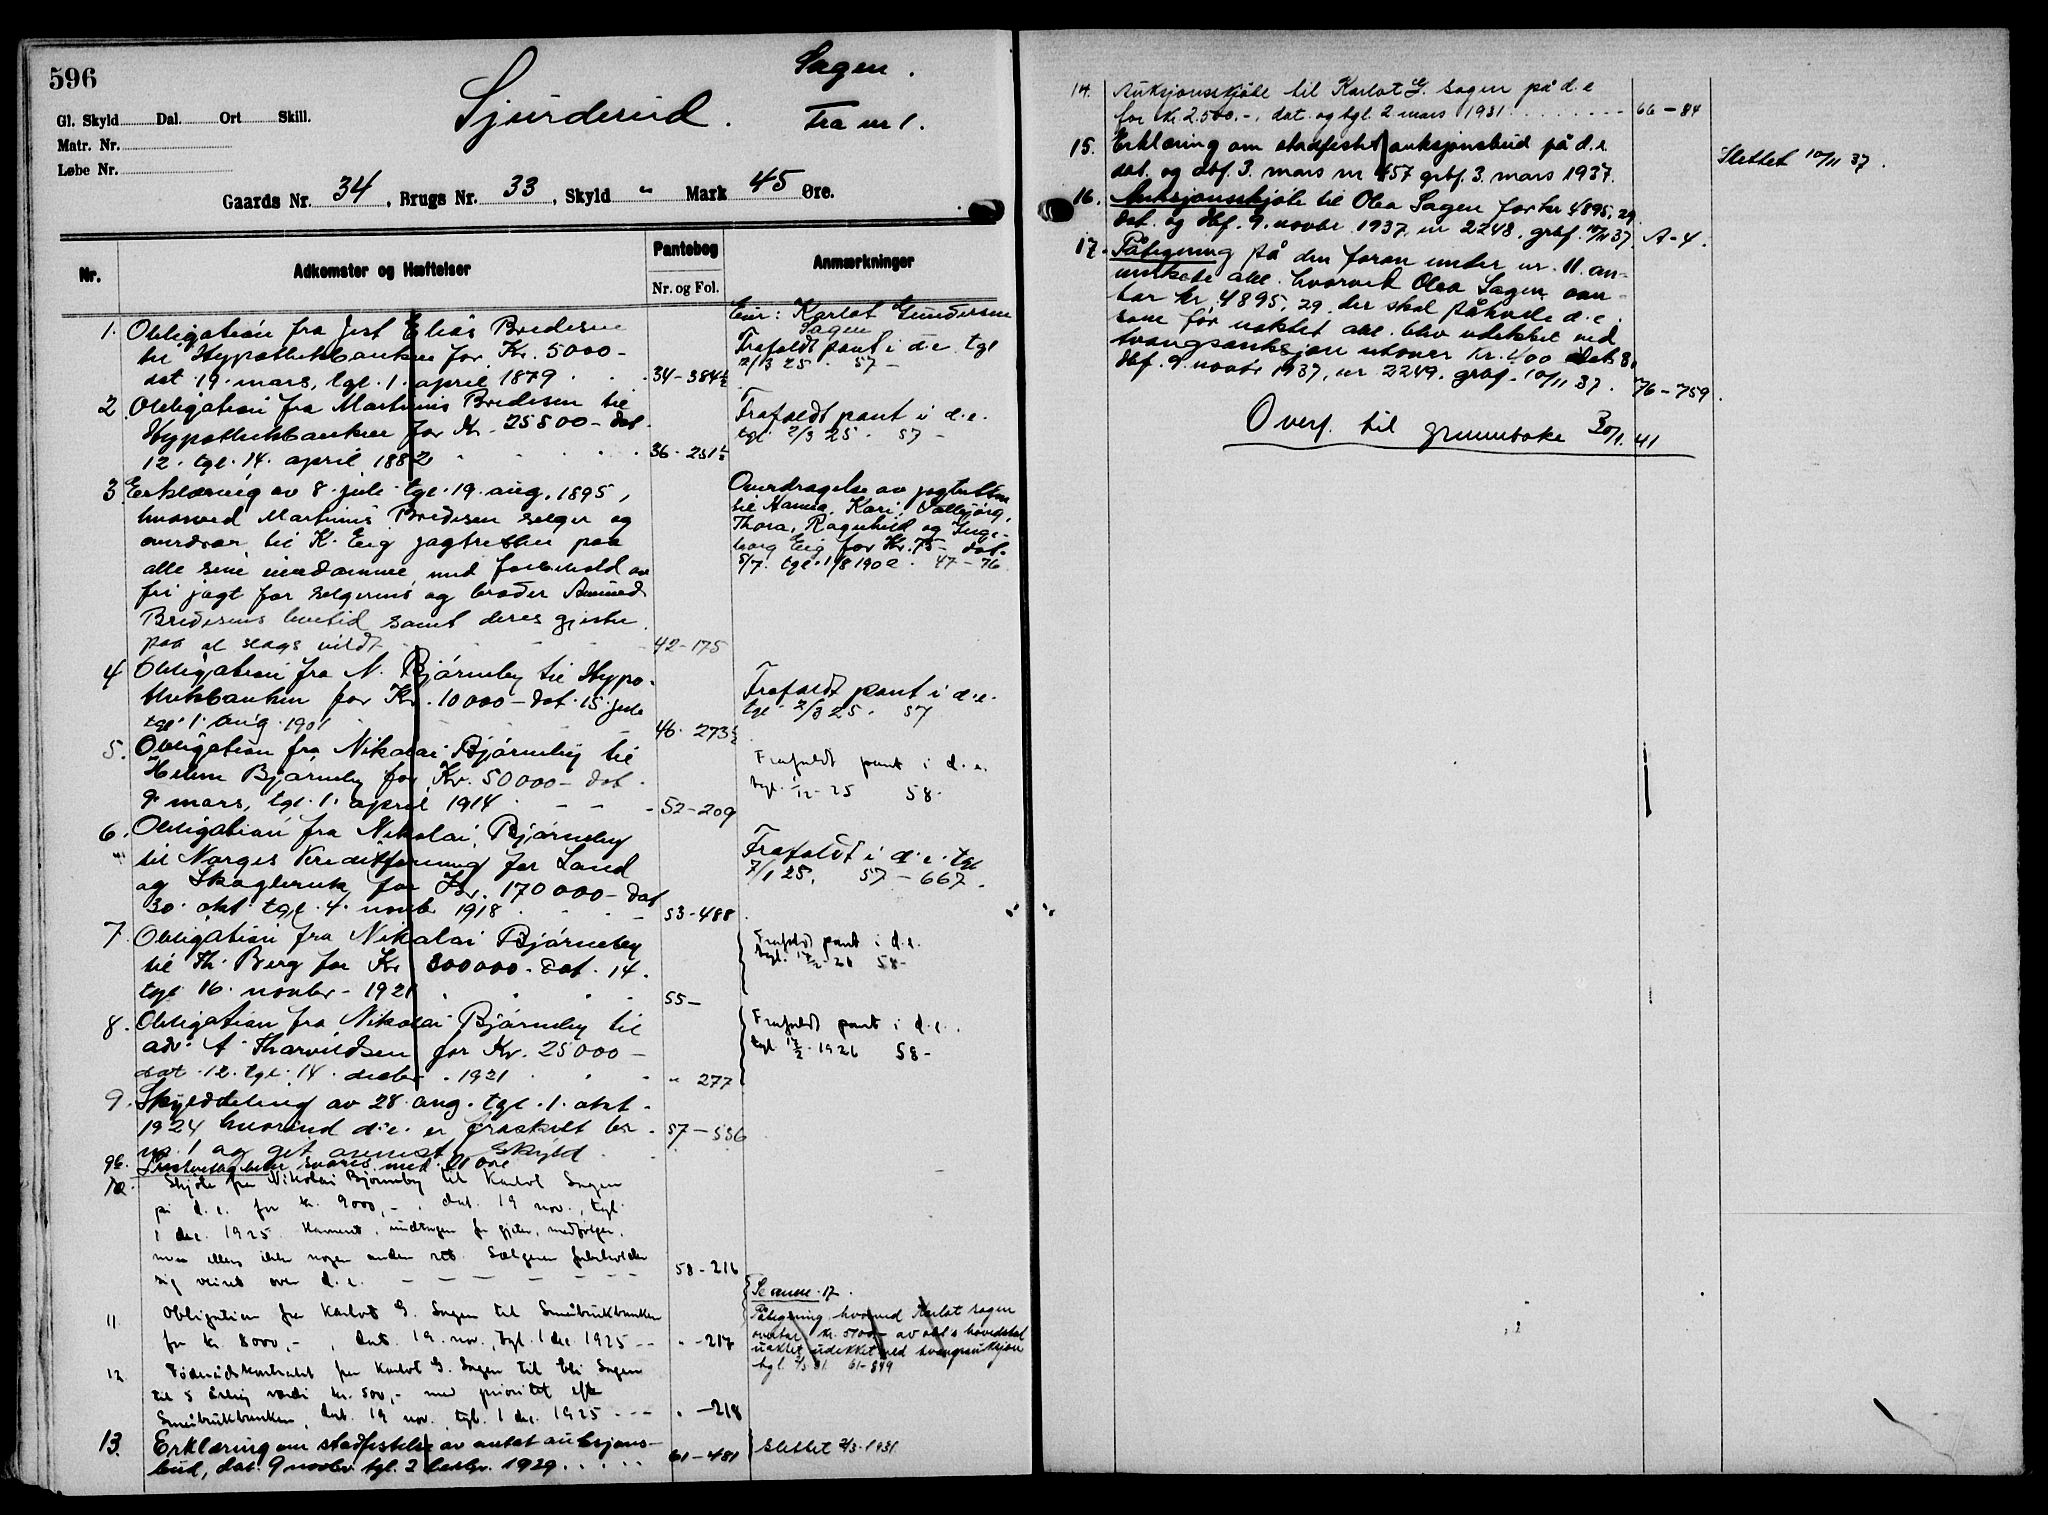 596
Sagen.
Sjurderud. Fra nr 1.
Gl. Skyld Dal. Ort Skill.
Matr. Nr.
Løbe Nr.
Gaards Nr. 34, Brugs Nr. 33, Skyld " Mark 45 Øre.
Nr. Adkomster og Hæftelser Pantebog Nr. og Fol. Anmærkninger
Eier: Karlot Gundersen
Sagen
1. Obligation fra Jest Elias Bredesen
til Hypothekbanken for Kr. 5000-
dat. 19. mars, tgl. 1. april 1879 34-384½
Frafaldt pant i d.e. tgl
2/3 25. 57-
2. Obligation fra Martinius Bredesen til
Hypothekbanken for Kr. 25500- dat.
12. tgl. 14. april 1882 36-251½
Frafaldt pant i d.e.
tgl. 2/3 25. 57-
3. Erklæring av 8. juli tgl. 19. aug. 1895,
hvorved Martinius Bredesen selger og
overdrar til K. Eeg jagtretten paa
alle sine eiendomme, med forbehold av
fri jagt for selgerens og broder Amund
Bredesens levetid samt deres gjester
paa al slags vildt 42-175
Overdragelse av jagtretten
til Hanna, Kari, Valbjørg,
Thora, Ragnhild og Inge-
borg Eeg for Kr. 75- dat.
5/7. tgl. 1/8 1902. 47-76
4. Obligation fra N. Bjørneby til Hypo-
thekbanken for Kr. 10000- dat. 15 juli
tgl. 1. aug. 1901 46-273½
Frafaldt pant i d.e.
tgl. 2/3 25. 57
5. Obligation fra Nikolai Bjørneby til
Helene Bjørneby for Kr. 50000- dat.
9 mars, tgl. 1. april 1914 52-209
Frafaldt pant i d.e.
tgl. 1/12-25 58-
6. Obligation fra Nikolai Bjørneby
til Norges Kreditforening for Land
og Skogbruk for Kr. 170000- dat
30. okt tgl. 4. novbr 1918 53-488
Frafaldt i d.e. tgl
7/1 25. 57-667.
7. Obligation fra Nikolai Bjørneby
til Th. Berg for Kr 300000- dat. 14.
tgl 16. novbr- 1921 55-
Frafaldt pant i d.e.
tgl. 17/2-26 58-
8. Obligation fra Nikolai Bjørneby til
adv. A. Tharaldsen for Kr. 25000-
dat. 12. tgl. 14. decbr. 1921 " 277
Frafaldt pant i d.e.
tgl. 17/2-1926 58-
9. Skylddeling av 28. aug. tgl. 1. okt.
1924 hvorved d.e. er fraskilt br.
nr. 1 og git anmerket skyld 57-556
9b. svares med 01 øre
10. Skjøte fra Nikolai Bjørneby til Karlot Sagen
på d.e. for kr. 9000,-, dat. 19 nov., tgl.
1 dec. 1925. Havneret, undtagen for gjeter, medfølger,
men ellers ikke nogen anden ret. Sælgeren forbeholder
sig veiret over d.e. 58-216
11 Obligation fra Karlot G. Sagen til Småbrukbanken
for kr. 8000,-, dat. 19. nov., tgl. 1 dec 1925 " -217
Se anm. 17.
Påtegning hvorved Karlot Sagen
overtar kr. 5100- av obl.s hovedstol
uaktet udekket ved tvangsauksjon
tgl. 2/3 31 61-899
12. Føderådskontrakt fra Karlot G. Sagen til Eli Sagen
til 5 årlig værdi kr. 500,- med prioritet efter
Småbrukbanken, dat. 19 nov. tgl. 1 dec. 1925 " -218
13. Erklæring om stadfestelse av antat auksjons-
bud, dat. 9 novbr tgl. 2 decbr. 1929 61-481
Slettet 2/3-1931
14. Auksjonsskjøte til Karlot G. Sagen på d.e
for kr. 2.500.-, dat. og tgl. 2 mars 1931 66-84
15. Erklæring om stadfestet auksjonsbud på d.e
dat. og dbf. 3. mars nr 457 grbf. 3. mars 1937.
Slettet 10/11 37.
16. Auksjonsskjøte til Olea Sagen for kr 4895,29.
dat. og dbf. 9. novbr. 1937. nr 2248. grbf. 10/11 37. A-4.
17. Påtegning på den foran under nr. 11 an-
merkete obl. hvorved Olea Sagen over-
tar kr. 4895,29 der skal påhvile d.e.
som før uaktet obl. blev udekket ved
tvangsauksjon utover kr. 400
dbf. 9. novbr 1937, nr 2249. grbf. 10/11 37. 76-759.
Overf. til grunnboka 30/1. 41